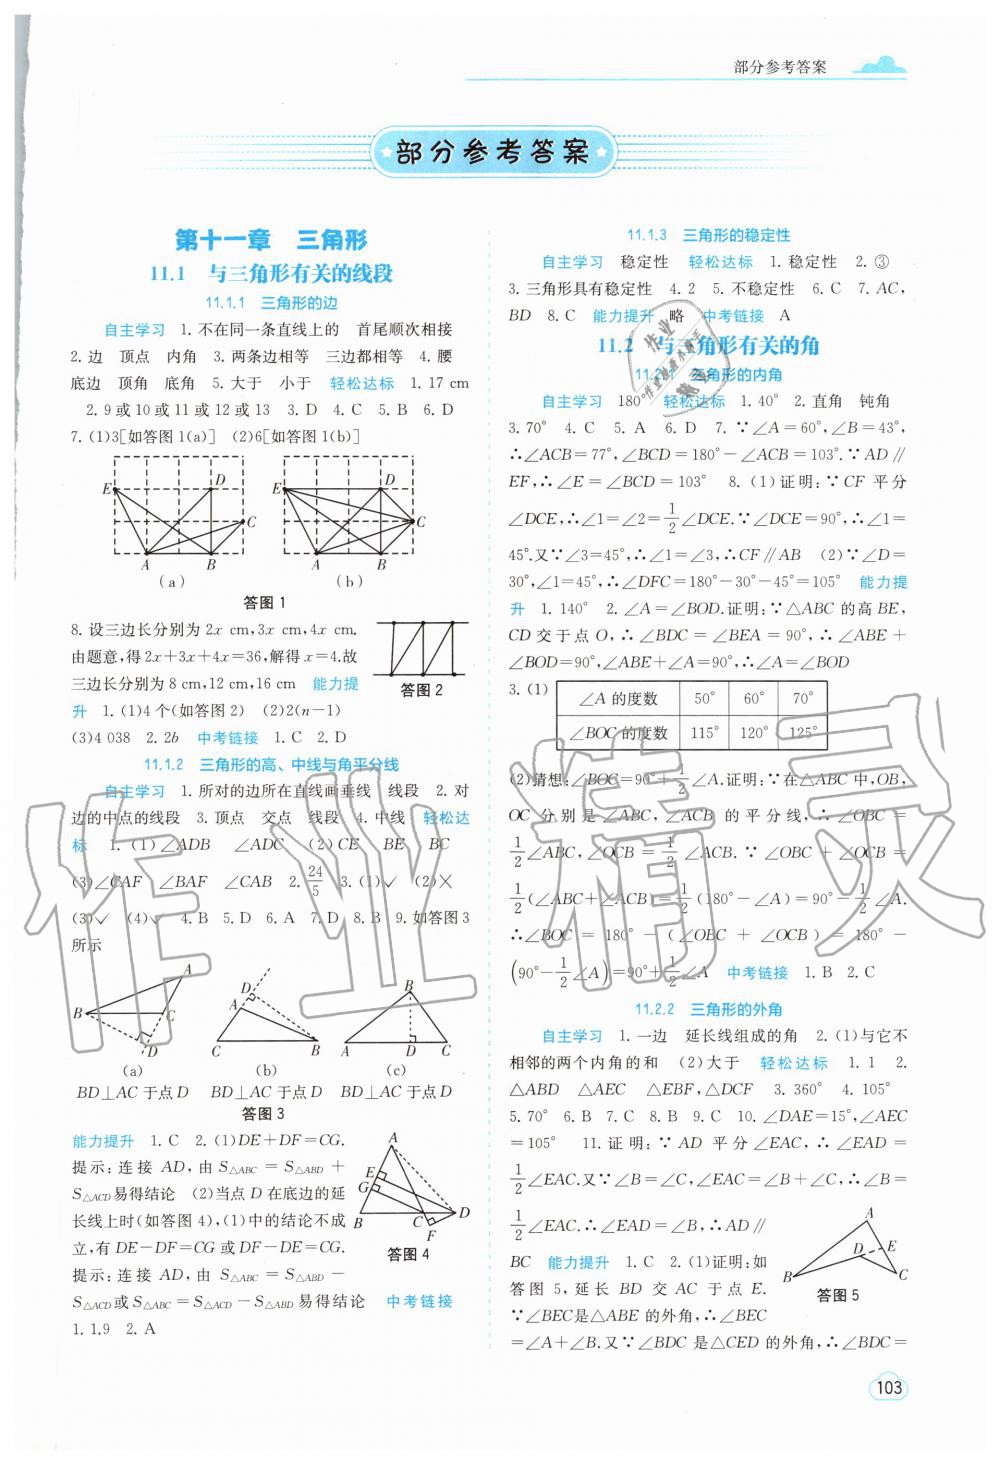 部分参考答案
部分参考答案
第十一章　三角形
11.1　与三角形有关的线段
11.1.1　三角形的边
自主学习　1. 不在同一条直线上的　首尾顺次相接
2. 边　顶点　内角　3. 两条边相等　三边都相等　4. 腰
底边　顶角　底角　5. 大于　小于　轻松达标　1. 17 cm
2. 9 或 10 或 11 或 12 或 13　3. D　4. C　5. B　6. D
7. (1)3[如答图 1(a)]　(2)6[如答图 1(b)]
E D C A B
(a)
E D C A B
(b)
答图 1
8. 设三边长分别为 2x cm,3x cm,4x cm.
由题意,得 2x+3x+4x=36,解得 x=4.故
三边长分别为 8 cm,12 cm,16 cm　能力提
升　1. (1)4 个(如答图 2)　(2)2(n-1)
答图 2
(3)4 038　2. 2b　中考链接　1. C　2. D
11.1.2　三角形的高、中线与角平分线
自主学习　1. 所对的边所在直线画垂线　线段　2. 对
边的中点的线段　3. 顶点　交点　线段　4. 中线　轻松达
标　1. (1)∠ADB　∠ADC　(2)CE　BE　BC
(3)∠CAF　∠BAF　∠CAB　2. 24/5　3. (1)√　(2)×
(3)√　(4)√　4. B　5. D　6. A　7. D　8. B　9. 如答图 3
所示
A B C D
(a)
D A C B
(b)
B A D C
(c)
BD⊥AC 于点 D　BD⊥AC 于点 D　BD⊥AC 于点 D
答图 3
能力提升　1. C　2. (1)DE+DF=CG.
提示:连接 AD,由 S△ABC = S△ABD +
S△ACD易得结论　(2)当点 D 在底边的延
长线上时(如答图 4),(1)中的结论不成
立,有 DE-DF=CG 或 DF-DE=CG.
A E G B C D F
答图 4
提示:连接 AD,由 S△ABC = S△ABD -
S△ACD或 S△ABC = S△ACD - S△ABD易得结论　中考链接
1. 1.9　2. A
11.1.3　三角形的稳定性
自主学习　稳定性　轻松达标　1. 稳定性　2. ③
3. 三角形具有稳定性　4. 2　5. 不稳定性　6. C　7. AC,
BD　8. C　能力提升　略　中考链接　A
11.2　与三角形有关的角
11.2.1　三角形的内角
自主学习　180°　轻松达标　1. 40°　2. 直角　钝角
3. 70°　4. C　5. A　6. D　7. ∵∠A=60°,∠B=43°,
∴∠ACB=77°,∠BCD=180°-∠ACB=103°.∵AD∥
EF,∴∠E=∠BCD=103°　8. (1)证明:∵CF 平分
∠DCE,∴∠1=∠2=1/2∠DCE.∵∠DCE=90°,∴∠1=
45°.又∵∠3=45°,∴∠1=∠3,∴CF∥AB　(2)∵∠D=
30°,∠1=45°,∴∠DFC=180°-30°-45°=105°　能力提
升　1. 140°　2. ∠A=∠BOD.证明:∵△ABC 的高 BE,
CD 交于点 O,∴∠BDC=∠BEA=90°,∴∠ABE+
∠BOD=90°,∠ABE+∠A=90°,∴∠A=∠BOD
3. (1)
∠A 的度数　50°　60°　70°
∠BOC 的度数　115°　120°　125°
(2)猜想:∠BOC=90°+1/2∠A.证明:∵在△ABC 中,OB,
OC 分别是∠ABC,∠ACB 的平分线,∴∠OBC=
1/2∠ABC,∠OCB=1/2∠ACB.∵∠OBC+∠OCB=
1/2(∠ABC+∠ACB)=1/2(180°-∠A)=90°-1/2∠A.
∴∠BOC=180°-(∠OBC+∠OCB)=180°-
(90°-1/2∠A)=90°+1/2∠A　中考链接　1. B　2. C
11.2.2　三角形的外角
自主学习　1. 一边　延长线组成的角　2. (1)与它不
相邻的两个内角的和　(2)大于　轻松达标　1. 1　2.
△ABD　△AEC　△EBF,△DCF　3. 360°　4. 105°
5. 70°　6. B　7. C　8. B　9. C　10. ∠DAE=15°,∠AEC
=105°　11. 证明:∵AD 平分∠EAC,∴∠EAD=
1/2∠EAC.又∵∠B=∠C,∠EAC=∠B+∠C,∴∠B=
1/2∠EAC.∴∠EAD=∠B,∴AD∥
BC　能力提升　1. C　2. (1)证明:如
答图 5,延长 BD 交 AC 于点 E.
∵∠BEC是△ABE 的外角,∴∠BEC
A D E B C
答图 5
=∠A+∠B.又∵∠BDC 是△CED 的外角,∴∠BDC=
103
作业精灵